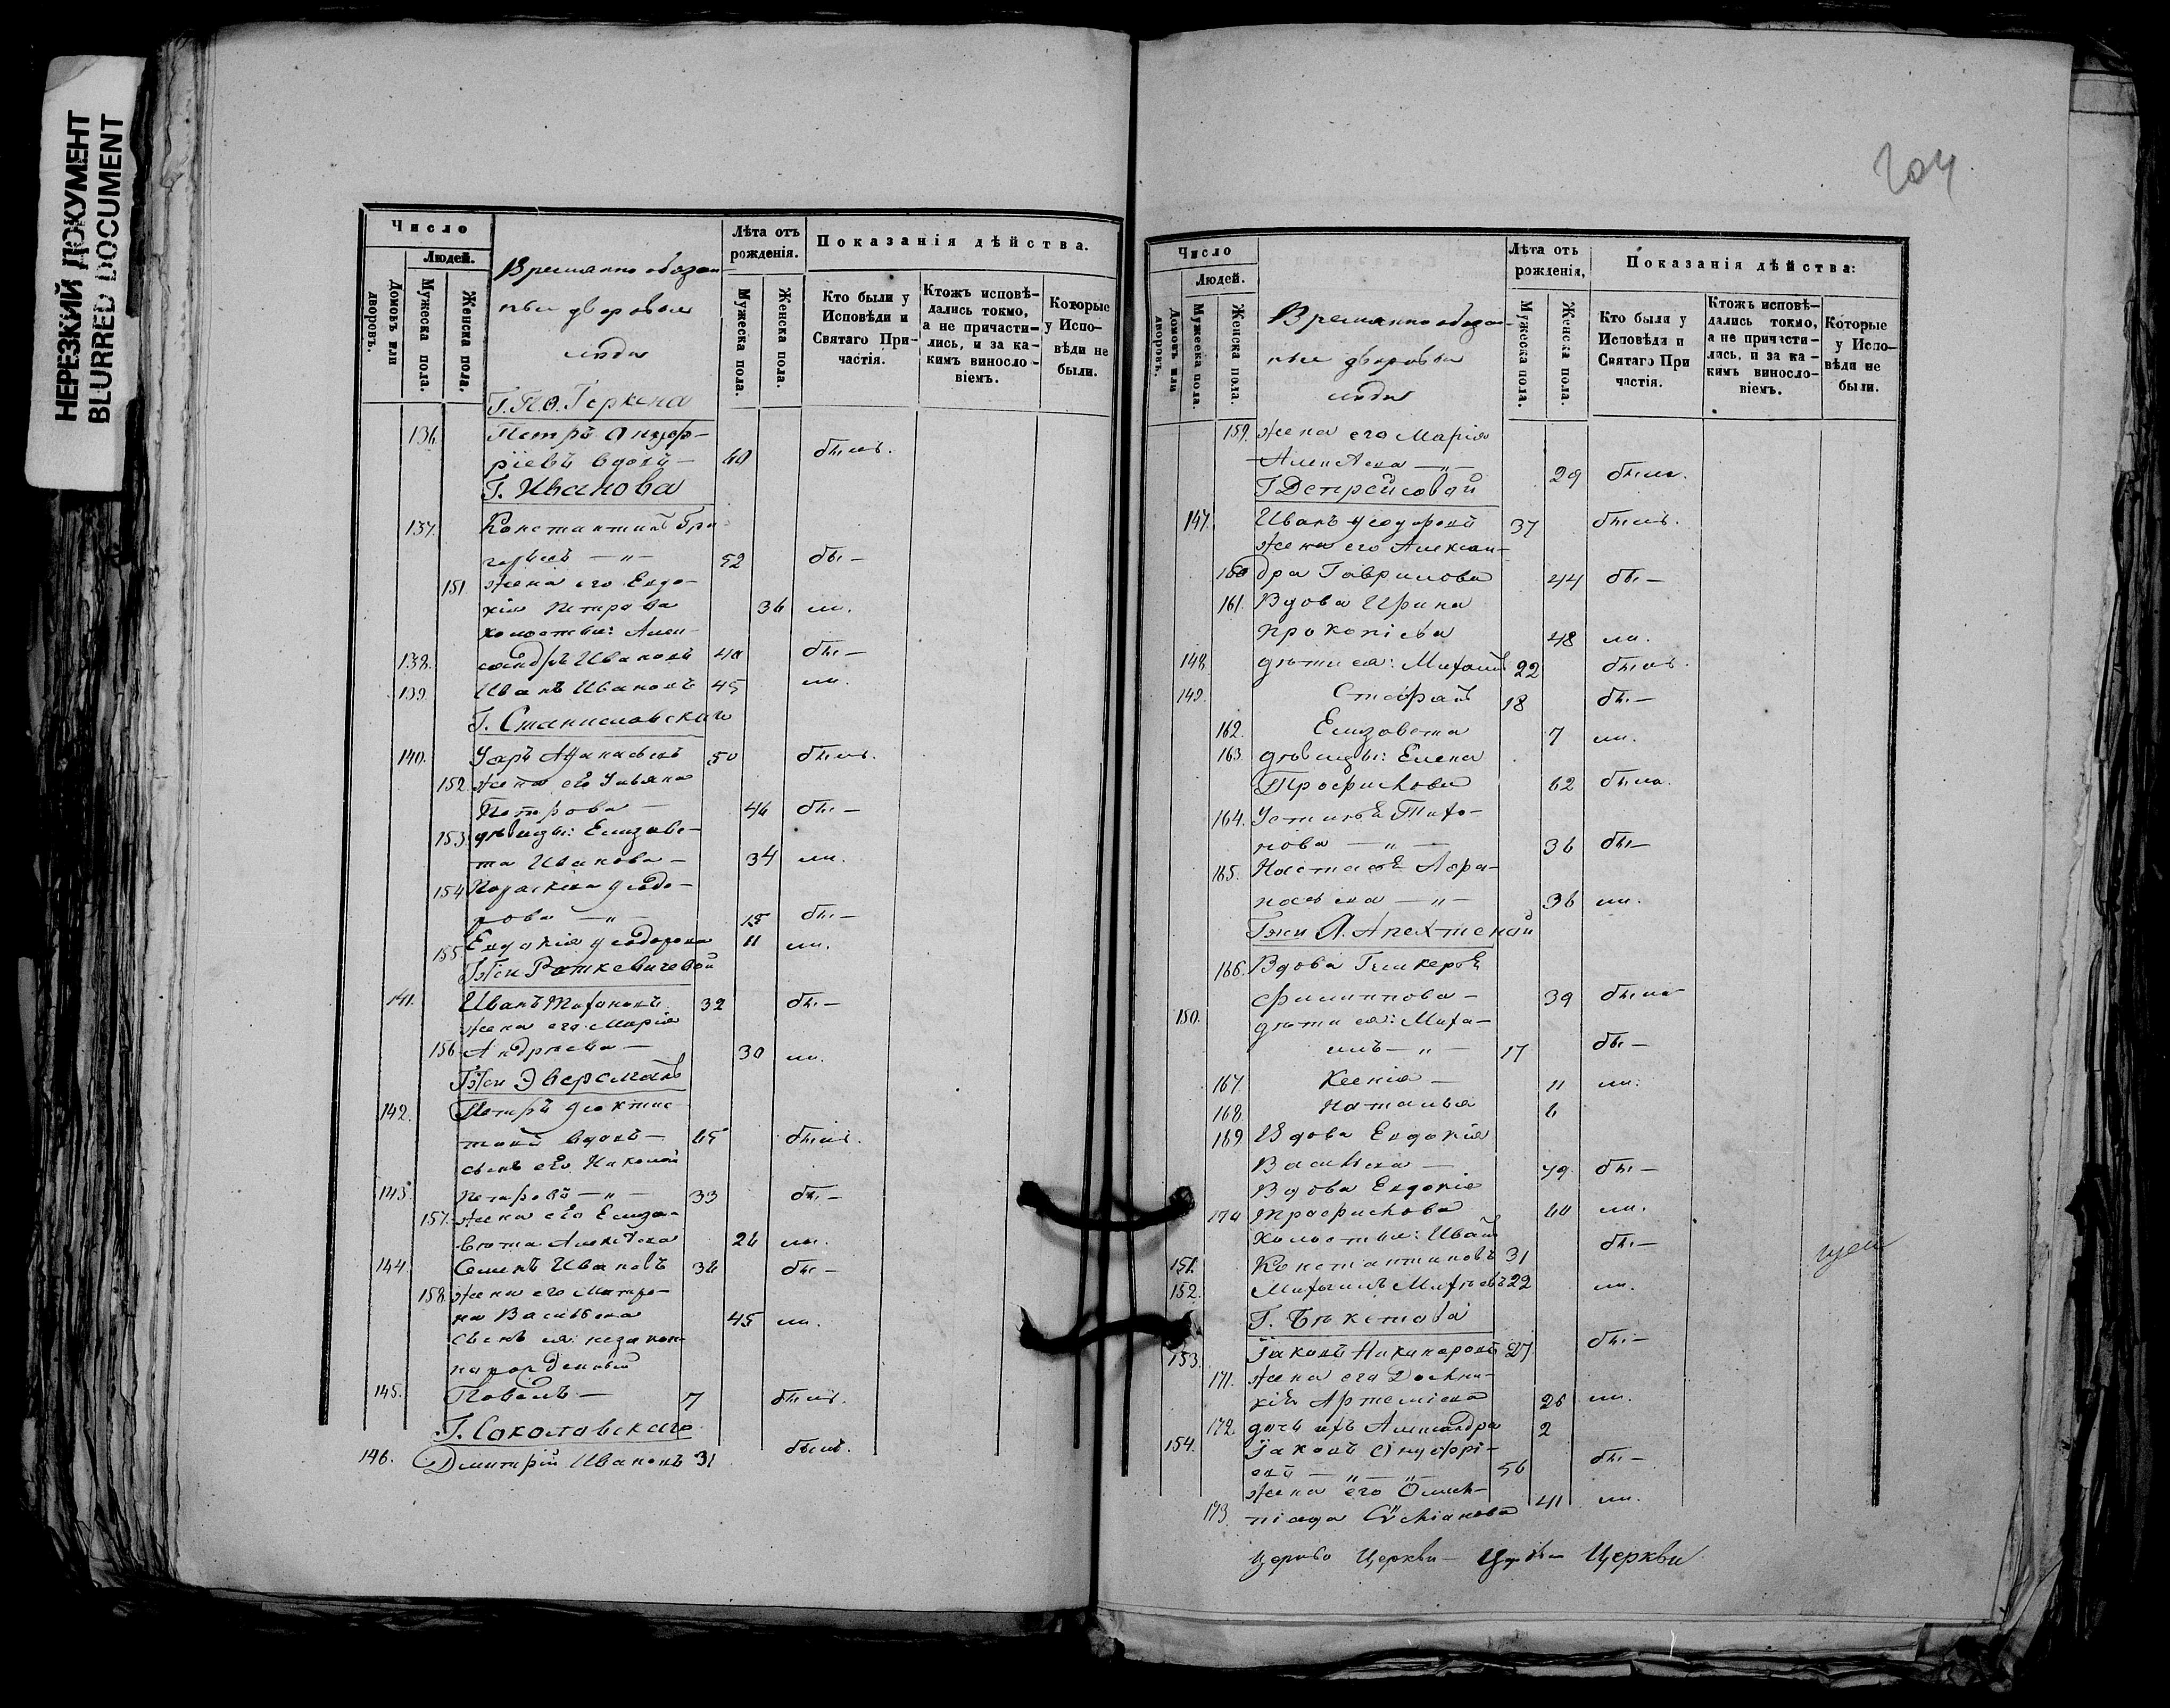 НЕРЕЗКИЙ ДОКУМЕНТ
BLURRED DOCUMENT
Число
Людей.
Домовъ или дворовъ.
Мужеска пола.
Женска пола.
Временно обязан-
ные дворовые
люди
Лѣта отъ рожденія.
Мужеска пола.
Женска пола.
Показанія дѣйства.
Кто были у Исповѣди и Святаго При-частія.
Ктожъ исповѣ-дались токмо, а не причасти-лись, и за ка-кимъ винословіемъ.
Которые у Испо-вѣди не были.
Г. Ю. Геркена
136. Петръ Онуф-
ріевъ вдовъ — 60 былъ.
Г. Иванова
137. Константинъ Гри-
горьевъ — „ — 52 бы —
151 жена его Евдо-
кія Петрова 36 ла.
холостые: Алек-
138. сандръ Ивановъ 40 бы —
139. Иванъ Ивановъ 45 лъ.
Г. Станиславскаго
140. Уаръ Афанасьевъ 50 былъ.
152. жена его Ульяна
Петрова — 46 бы —
153. дѣвицы: Елизаве-
та Иванова — 34 ла.
154 Параскева Ѳеодо-
рова — „ — 15 бы —
155. Евдокія Ѳеодорова 11 ла.
Гжи Раткевичевой
141. Иванъ Тихоновъ 32 бы —
жена его Марія
156 Андреева — 30 ла.
Гжи Эверсманъ
142. Петръ Ѳеоктис-
товъ вдовъ — 65 былъ.
сынъ его Николай
143. Петровъ — „ — 33 бы —
157. жена его Елиза-
вета Алексѣева 26 ла.
144. Семенъ Ивановъ 36 бы —
158. жена его Матре-
на Васильева 45 ла.
сынъ ея незакон-
норожденный
145. Павелъ — 7 былъ.
Г. Соколовскаго
146. Димитрій Ивановъ 31 былъ.
204
Число
Людей.
Домовъ или дворовъ.
Мужеска пола.
Женска пола.
Временно обязан-
ные дворовые
люди
Лѣта отъ рожденія,
Мужеска пола.
Женска пола.
Показанія дѣйства:
Кто были у Исповѣди и Святаго При частія.
Ктожъ исповѣ-дались токмо, а не причасти-лись, и за ка-кимъ винословіемъ.
Которые у Испо-вѣди не были.
159. жена его Марія
Алексѣева — „ — 29 была.
Г Депрейсовой
147. Иванъ Ѳеодоровъ 37 былъ.
жена его Алексан-
160 дра Гаврилова 44 бы —
161. Вдова Ирина
Прокопіева 48 ла.
148. дѣти ея: Михаилъ 22 былъ.
149. Стефанъ 18 бы —
162. Елизавета 7 ла.
163. дѣвицы: Елена
Трофимова 62 была.
164. Устинья Тихо-
нова — „ — 36 бы —
165. Настасья Афа-
насьева — „ — 36 ла.
Гжи Л. Апехтеной
166. Вдова Гликерья
Филиппова — 39 была
150. дѣти ея: Миха-
илъ — „ — 17 бы —
167. Ксенія — 11 ла.
168. Наталья 6
169. Вдова Евдокія
Васильева — 79 бы —
Вдова Евдокія
170 Трофимова 60 ла.
холостые: Иванъ бы —
151. Константиновъ 31
152. Михаилъ Михѣевъ 22 лъ.
Г. Бекетова
153. Іаковъ Никаноровъ 27 бы —
171. жена его Домни-
кія Артеміева 26 ла.
172. дочь ихъ Александра 2
154. Іаковъ Онуфрі-
евъ — „ — „ — 56 бы —
жена его Олим-
173. піада Сѵмеонова 41 ла.
Церкви — Церкви